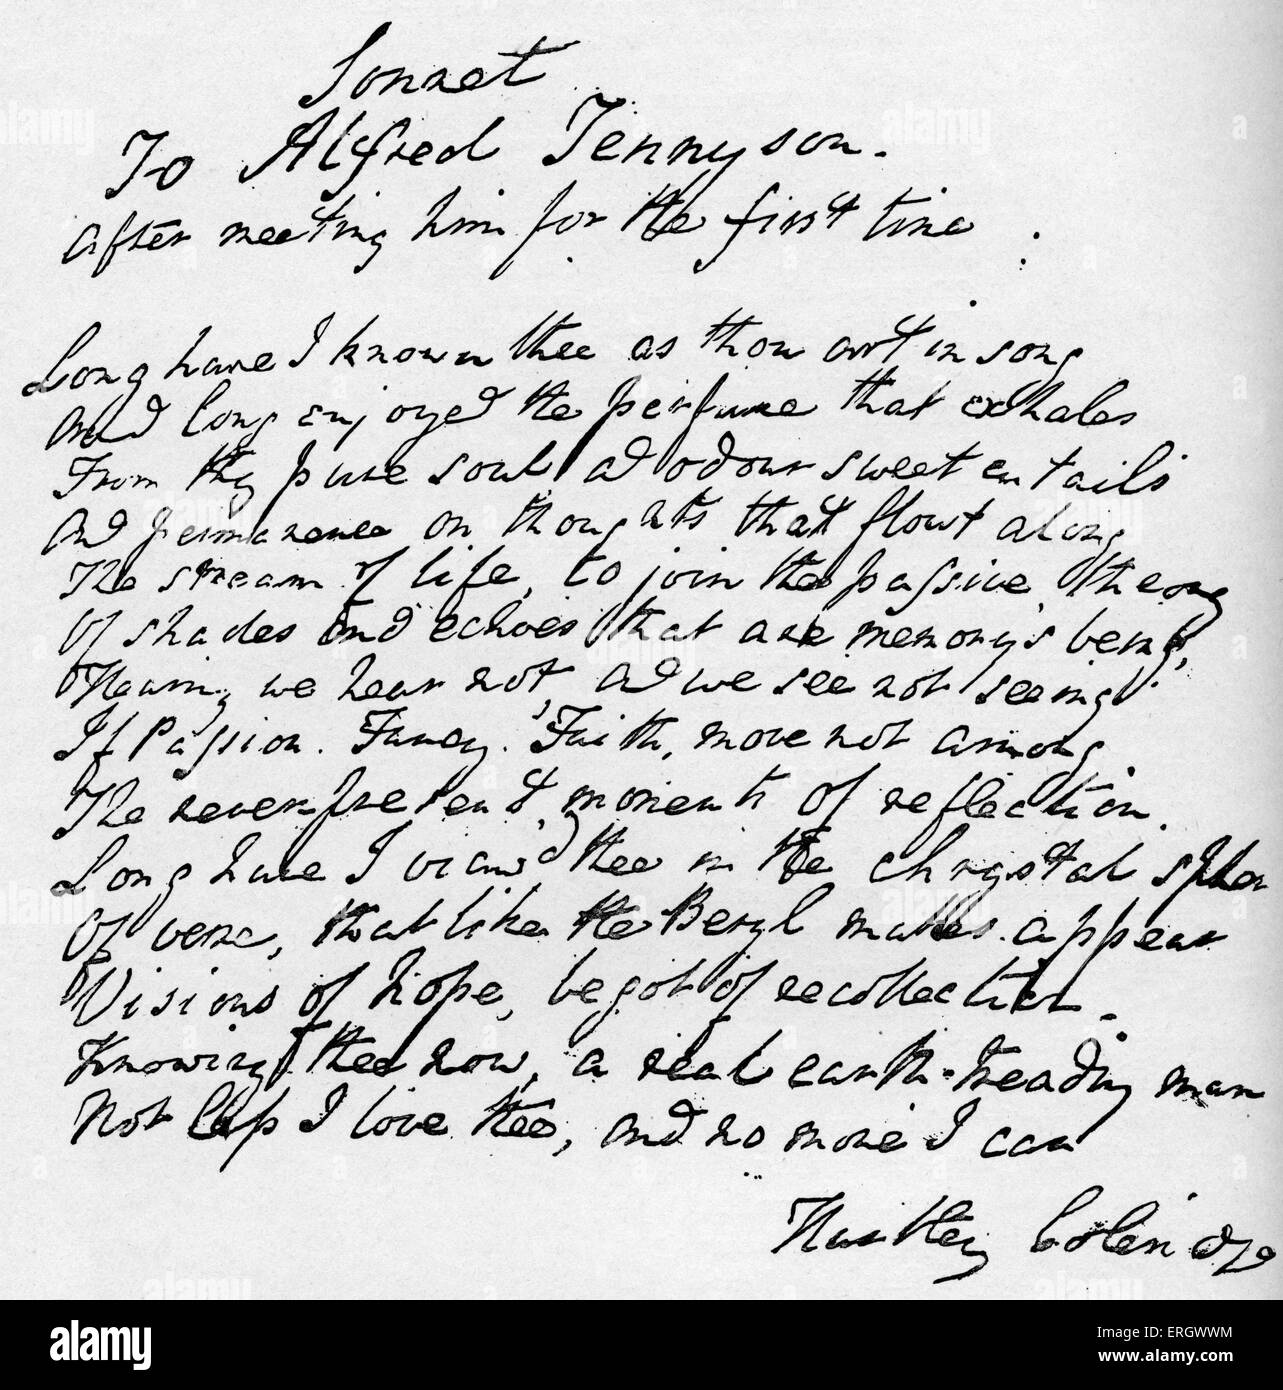 Sonnet
To Alfred Tennyson.
After meeting him for the first time
Long have I known thee as thou art in song
And long enjoyed the perfume that exhales
From thy pure soul ad odour sweet entails
And permanence on thoughts that flowt along
The stream of life, to join the passive throng
Of shades and echoes that are memory's being,
Hearing we hear not, ad we see not seeing
If Passion. Fancy. Faith, move not among
The never present moments of reflection.
Long have I view'd thee in the chrystal spher
Of verse, that like the Beryl makes appear
Visions of hope, begot of recollection.
Knowing thee now, a real earth-treading man
Not less I love thee, and no more I can
Hartley Coleridge
alamy
Image ID: ERGWWM
www.alamy.com